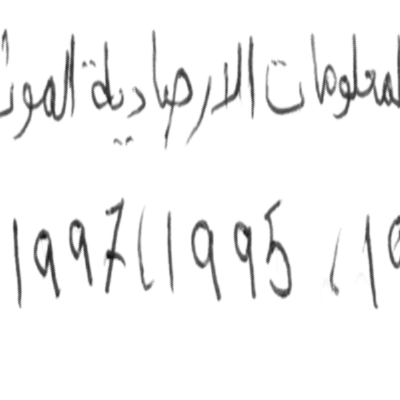 لمعلومات الارصادية الموث
19، 1995، 1997